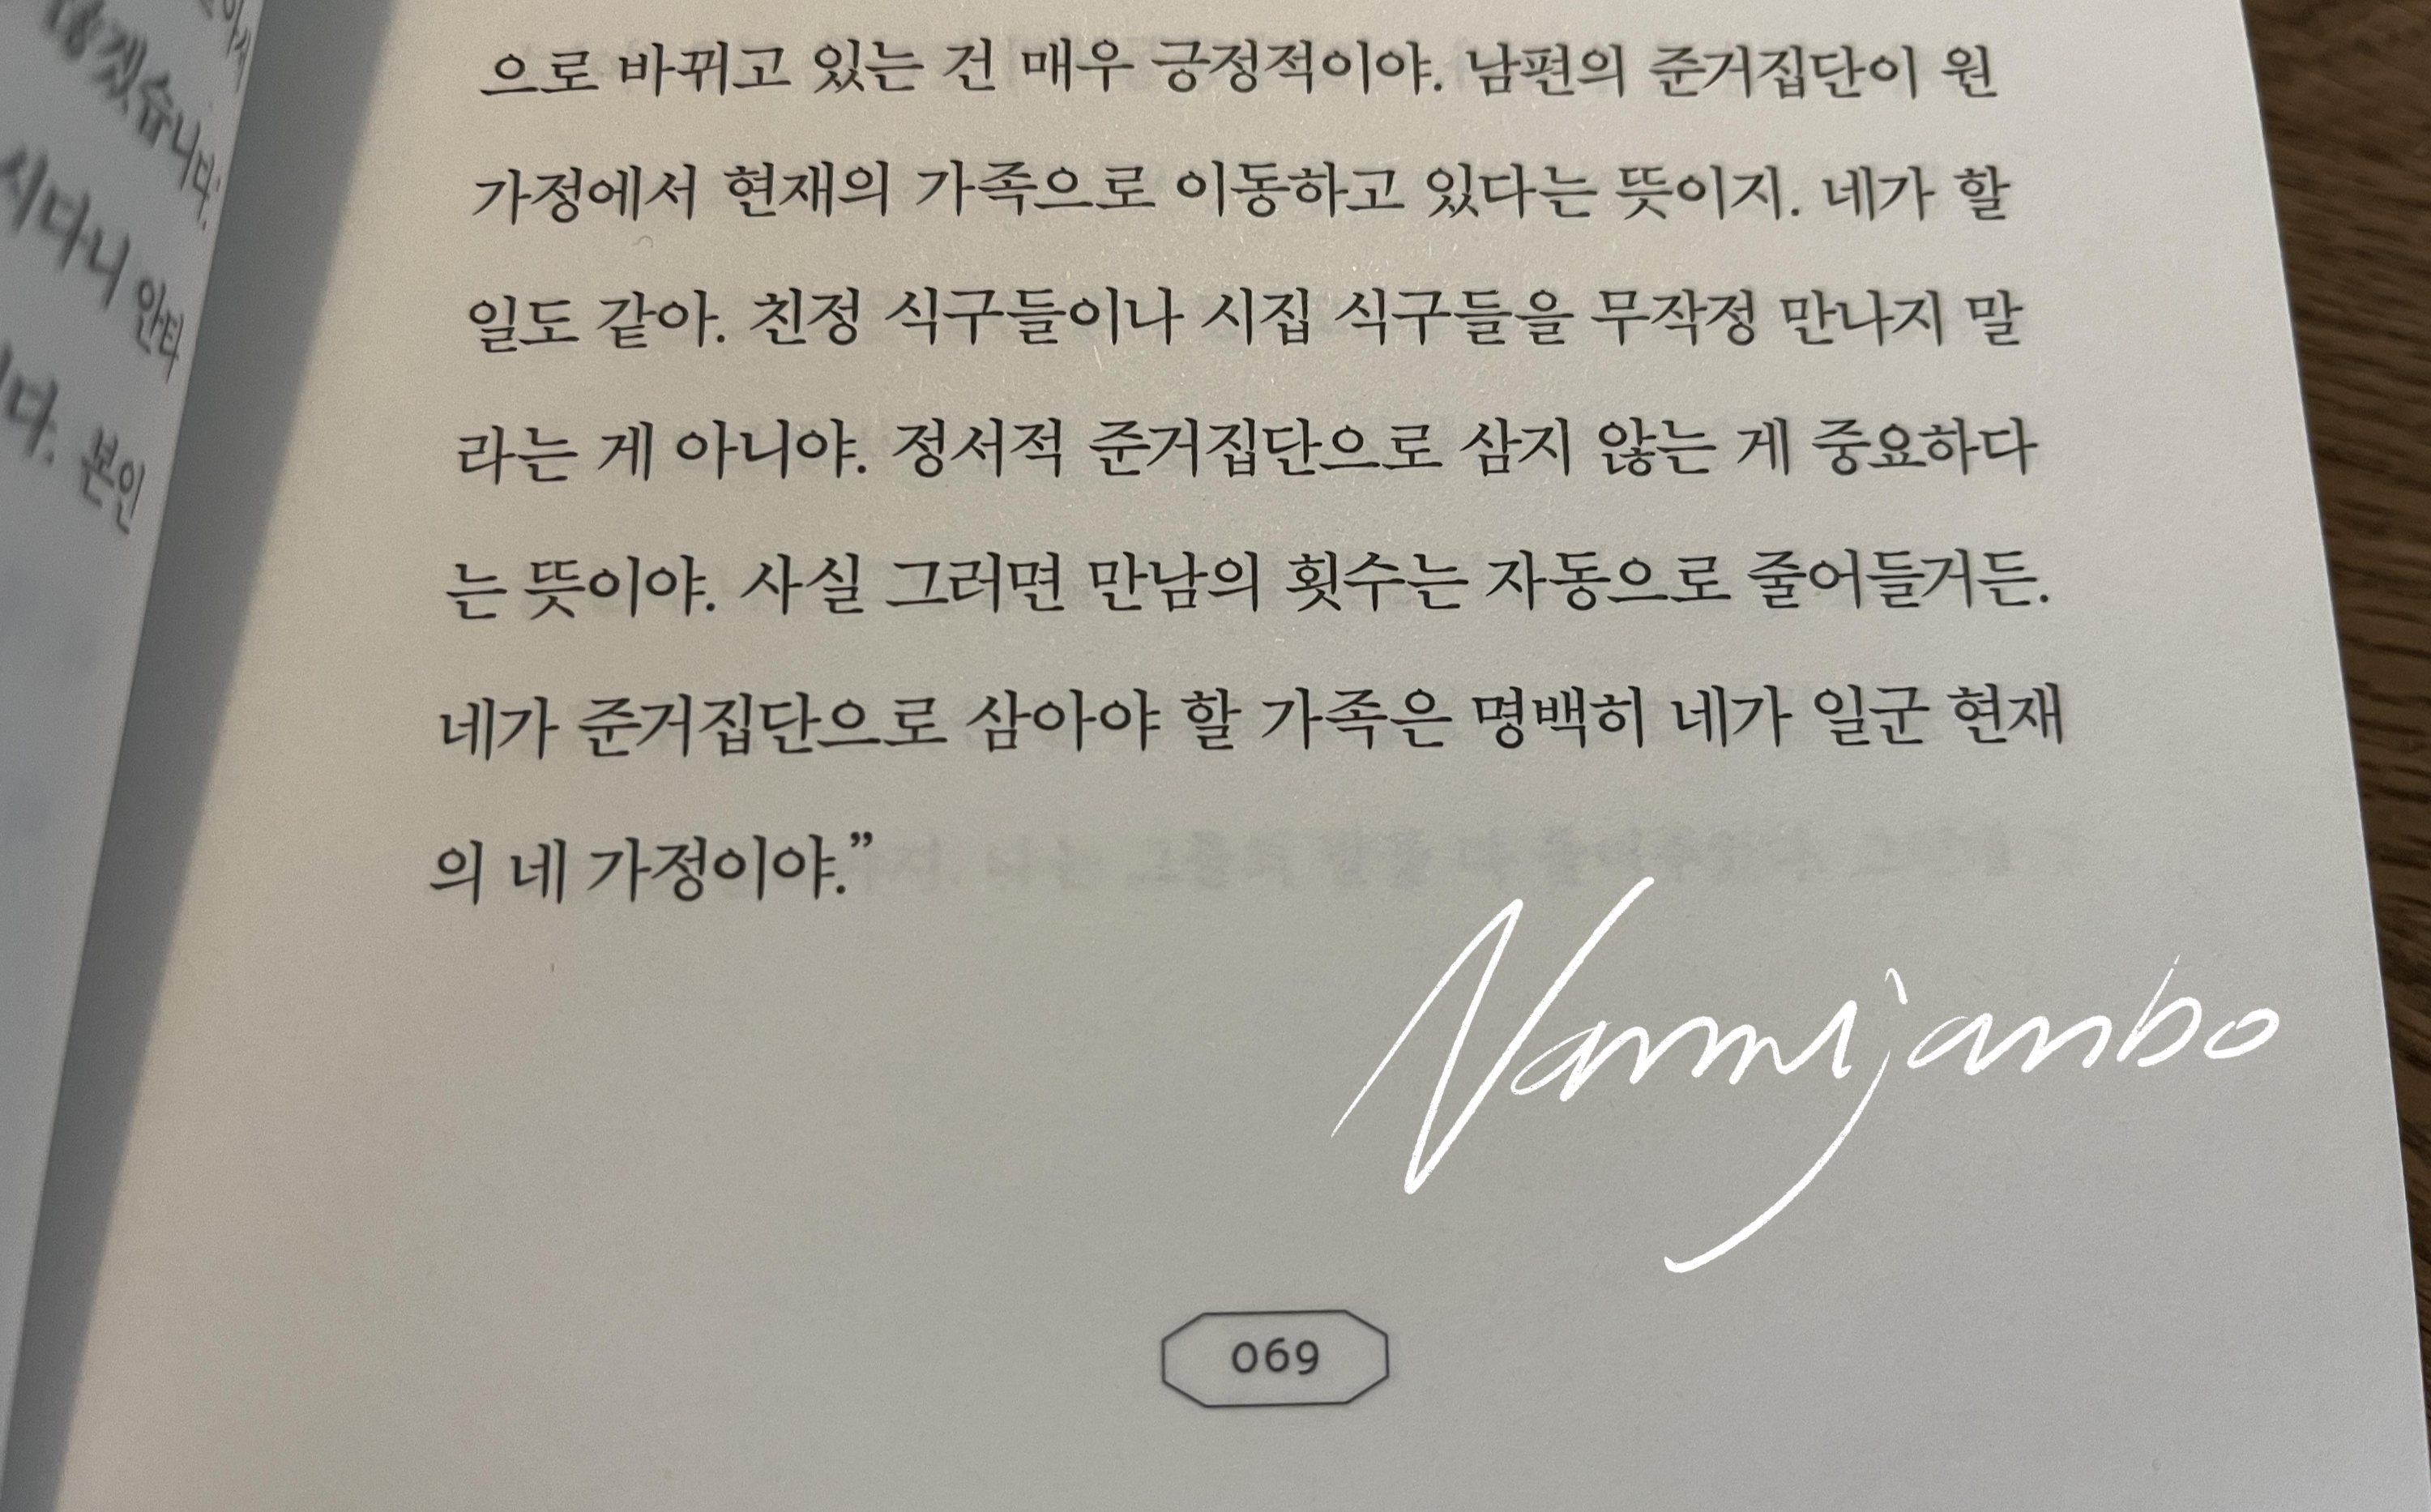 않겠습니다.
시다니 안타
다. 본인
으로 바뀌고 있는 건 매우 긍정적이야. 남편의 준거집단이 원
가정에서 현재의 가족으로 이동하고 있다는 뜻이지. 네가 할
일도 같아. 친정 식구들이나 시집 식구들을 무작정 만나지 말
라는 게 아니야. 정서적 준거집단으로 삼지 않는 게 중요하다
는 뜻이야. 사실 그러면 만남의 횟수는 자동으로 줄어들거든.
네가 준거집단으로 삼아야 할 가족은 명백히 네가 일군 현재
의 네 가정이야.”
Nammijanbo
069